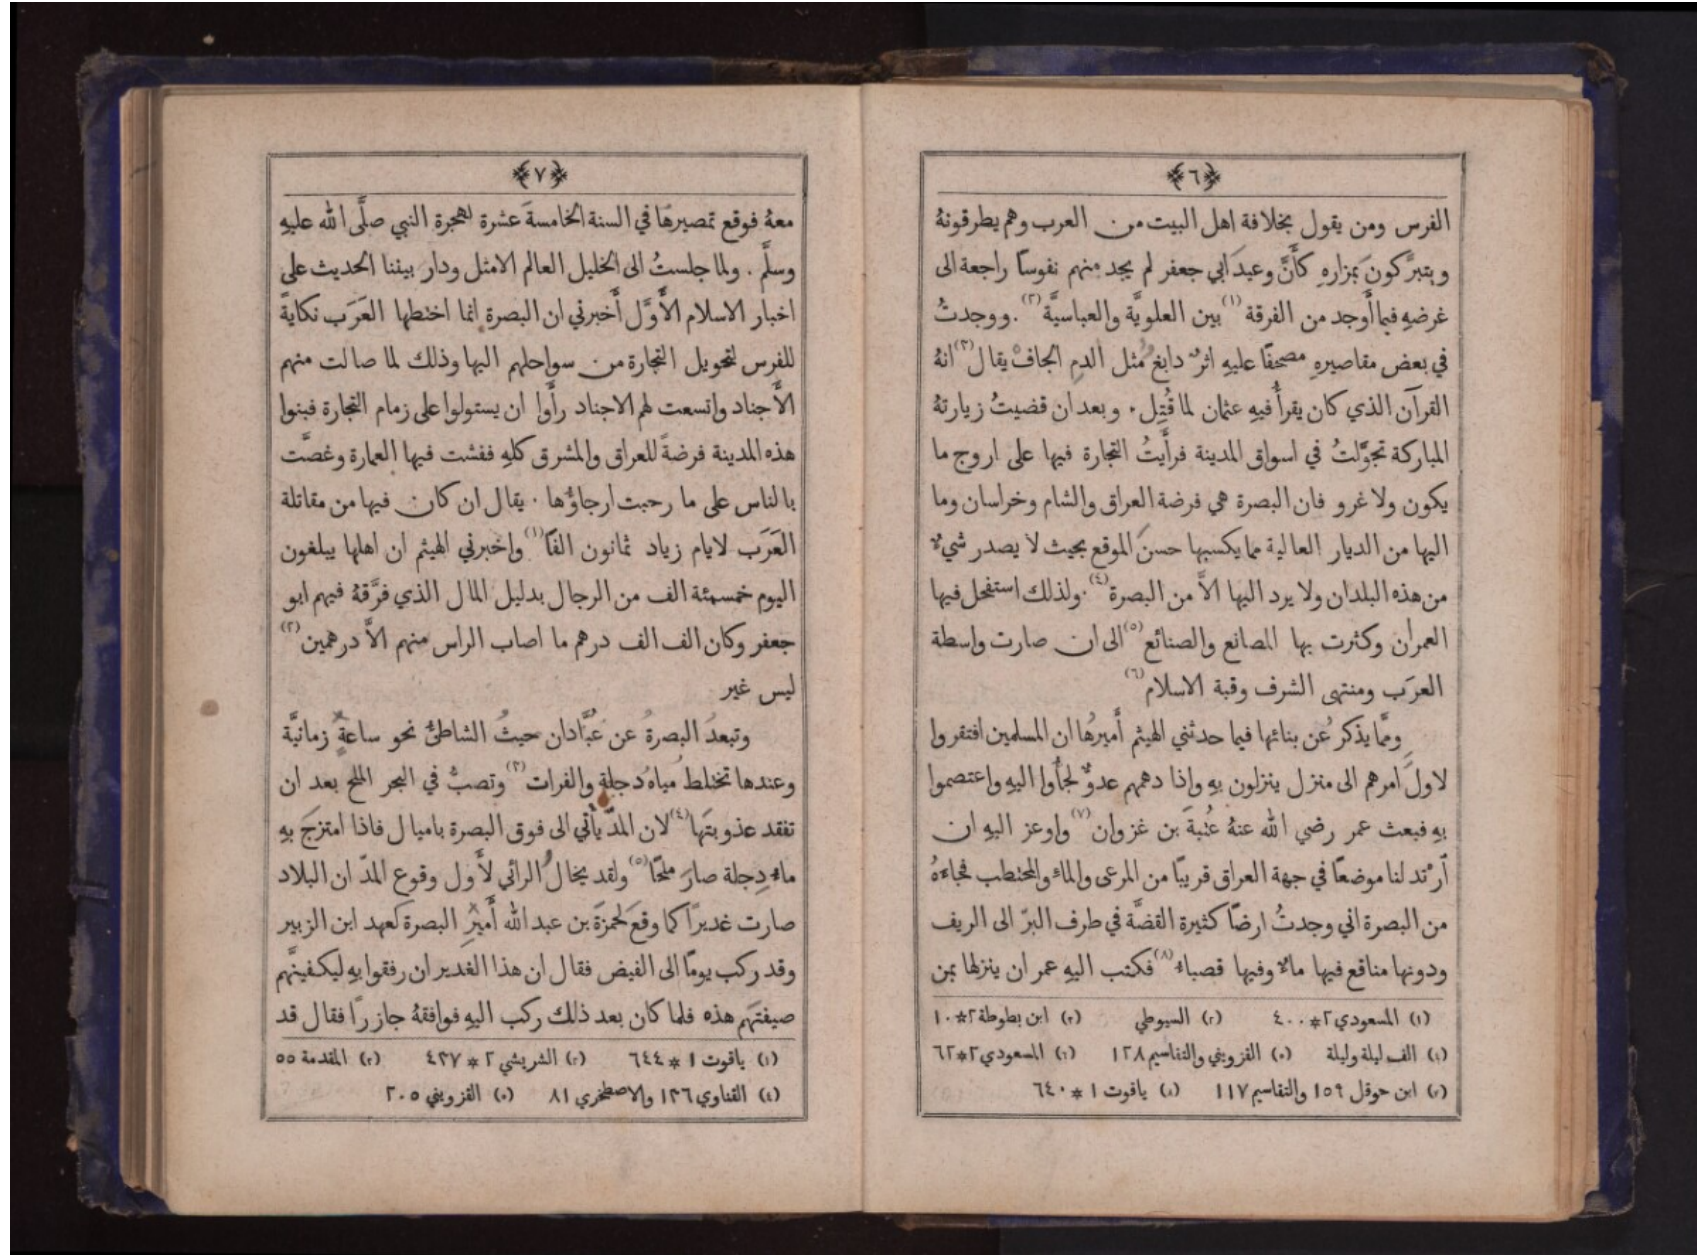 ﴿٦﴾
الفرس ومن يقول بخلافة اهل البيت من العرب وهم يطرقونهُ
ويتبرَّكون بمزارهِ كأَنَّ وعيد ابي جعفر لم يجد منهم نفوسًا راجعة الى
غرضهِ فيما أَوجد من الفرقة (١) بين العلويَّة والعباسيَّة (٢). ووجدتُ
في بعض مقاصيرهِ مصحفًا عليهِ اثرٌ دابغ مثل الدم الجافّ يقال (٣) انهُ
القرآن الذي كان يقرأُ فيهِ عثمان لما قُتِل. وبعد ان قضيتُ زيارتهُ
المباركة تجوَّلتُ في اسواق المدينة فرأَيتُ التجارة فيها على اروج ما
يكون ولا غرو فان البصرة هي فرضة العراق والشام وخراسان وما
اليها من الديار العالية مما يكسبها حسنَ الموقع بحيث لا يصدر شيءٌ
من هذه البلدان ولا يرد اليها الاَّ من البصرة (٤). ولذلك استفحل فيها
العمران وكثرت بها المصانع والصنائع (٥) الى ان صارت واسطة
العرَب ومنتهى الشرف وقبة الاسلام (٦)
وممَّا يذكر عن بنائها فيما حدثني الهيثم أَميرهُا ان المسلمين افتقروا
لاول امرهم الى منزل ينزلون بهِ واذا دهمهم عدوٌّ لجأُوا اليهِ واعتصموا
بهِ فبعث عمر رضي الله عنهُ عُتبةَ بن غزوان (٧) واوعز اليهِ ان
اَرْتد لنا موضعًا في جهة العراق قريبًا من المرعى والماءِ والمحتطب فجاءَهُ
من البصرة اني وجدتُ ارضًا كثيرة القضَّة في طرف البرّ الى الريف
ودونها مناقع فيها ماءٌ وفيها قصباءُ (٨) فكتب اليهِ عمر ان ينزلها بمن
(١) المسعودي ٢*٤٠٠ (٢) السيوطي (٣) ابن بطوطة ٢*١٠
(٤) الف ليلة وليلة (٥) القزويني والتقاسيم ١٢٨ (٦) المسعودي ٢*٦٢
(٧) ابن حوقل ١٥٩ والتقاسيم ١١٧ (٨) ياقوت ١*٦٤٠
﴿٧﴾
معهُ فوقع تمصيرهَا في السنة الخامسةَ عشرة لهجرة النبي صلَّى الله عليهِ
وسلَّم. ولما جلستُ الى الخليل العالم الامثل ودار بيننا الحديث على
اخبار الاسلام الأَوَّل أَخبرني ان البصرة انما اختطها العَرَب نكايةً
للفرس لتحويل التجارة من سواحلهم اليها وذلك لما صالت منهم
الأَجناد واتسعت لهم الاجناد رأَوا ان يستولوا على زمام التجارة فبنوا
هذه المدينة فرضةً للعراق والمشرق كلهِ ففشت فيها العمارة وغصَّت
بالناس على ما رحبت ارجاؤُها. يقال ان كان فيها من مقاتلة
العَرَب لايام زياد ثمانون الفًا (١) واخبرني الهيثم ان اهلها يبلغون
اليوم خمسمئة الف من الرجال بدليل المال الذي فرَّقهُ فيهم ابو
جعفر وكان الف الف درهم ما اصاب الراس منهم الاَّ درهمين (٢)
ليس غير
وتبعدُ البصرةُ عن عَبَّادان حيثُ الشاطئُ نحو ساعةٍ زمانيَّة
وعندها تختلط مياهُ دجلة والفرات (٣) وتصبُّ في البحر الملح بعد ان
تفقد عذوبتَها (٤) لان المدّ يأتي الى فوق البصرة باميال فاذا امتزجَ بهِ
ماءُ دِجلة صارَ ملحًا (٥) ولقد يخالُ الرائي لأَول وقوع المدّ ان البلاد
صارت غديرًا كما وقعَ لحمزةَ بن عبد الله أَميرِ البصرة لعهد ابن الزبير
وقد ركب يومًا الى الفيض فقال ان هذا الغدير ان رفقوا بهِ ليكفينَّهم
صيفتَهم هذه فلما كان بعد ذلك ركب اليهِ فوافقهُ جازرًا فقال قد
(١) ياقوت ١*٦٤٤ (٢) الشريشي ٢*٤٣٧ (٣) المقدمة ٥٥
(٤) القناوي ١٣٦ والاصطخري ٨١ (٥) القزويني ٢٠٥